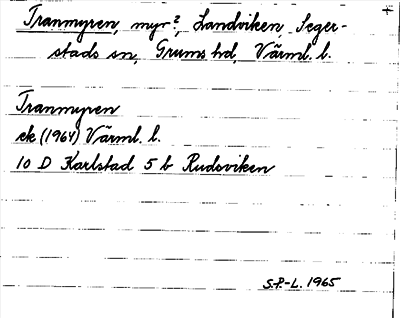 Tranmyren, myr?, Landviken, Seger-
stads sn, Grums hd, Värml. l.
Tranmyren
ek (1964) Värml. l.
10 D Karlstad 5 b Rudsviken
S.P-L. 1965